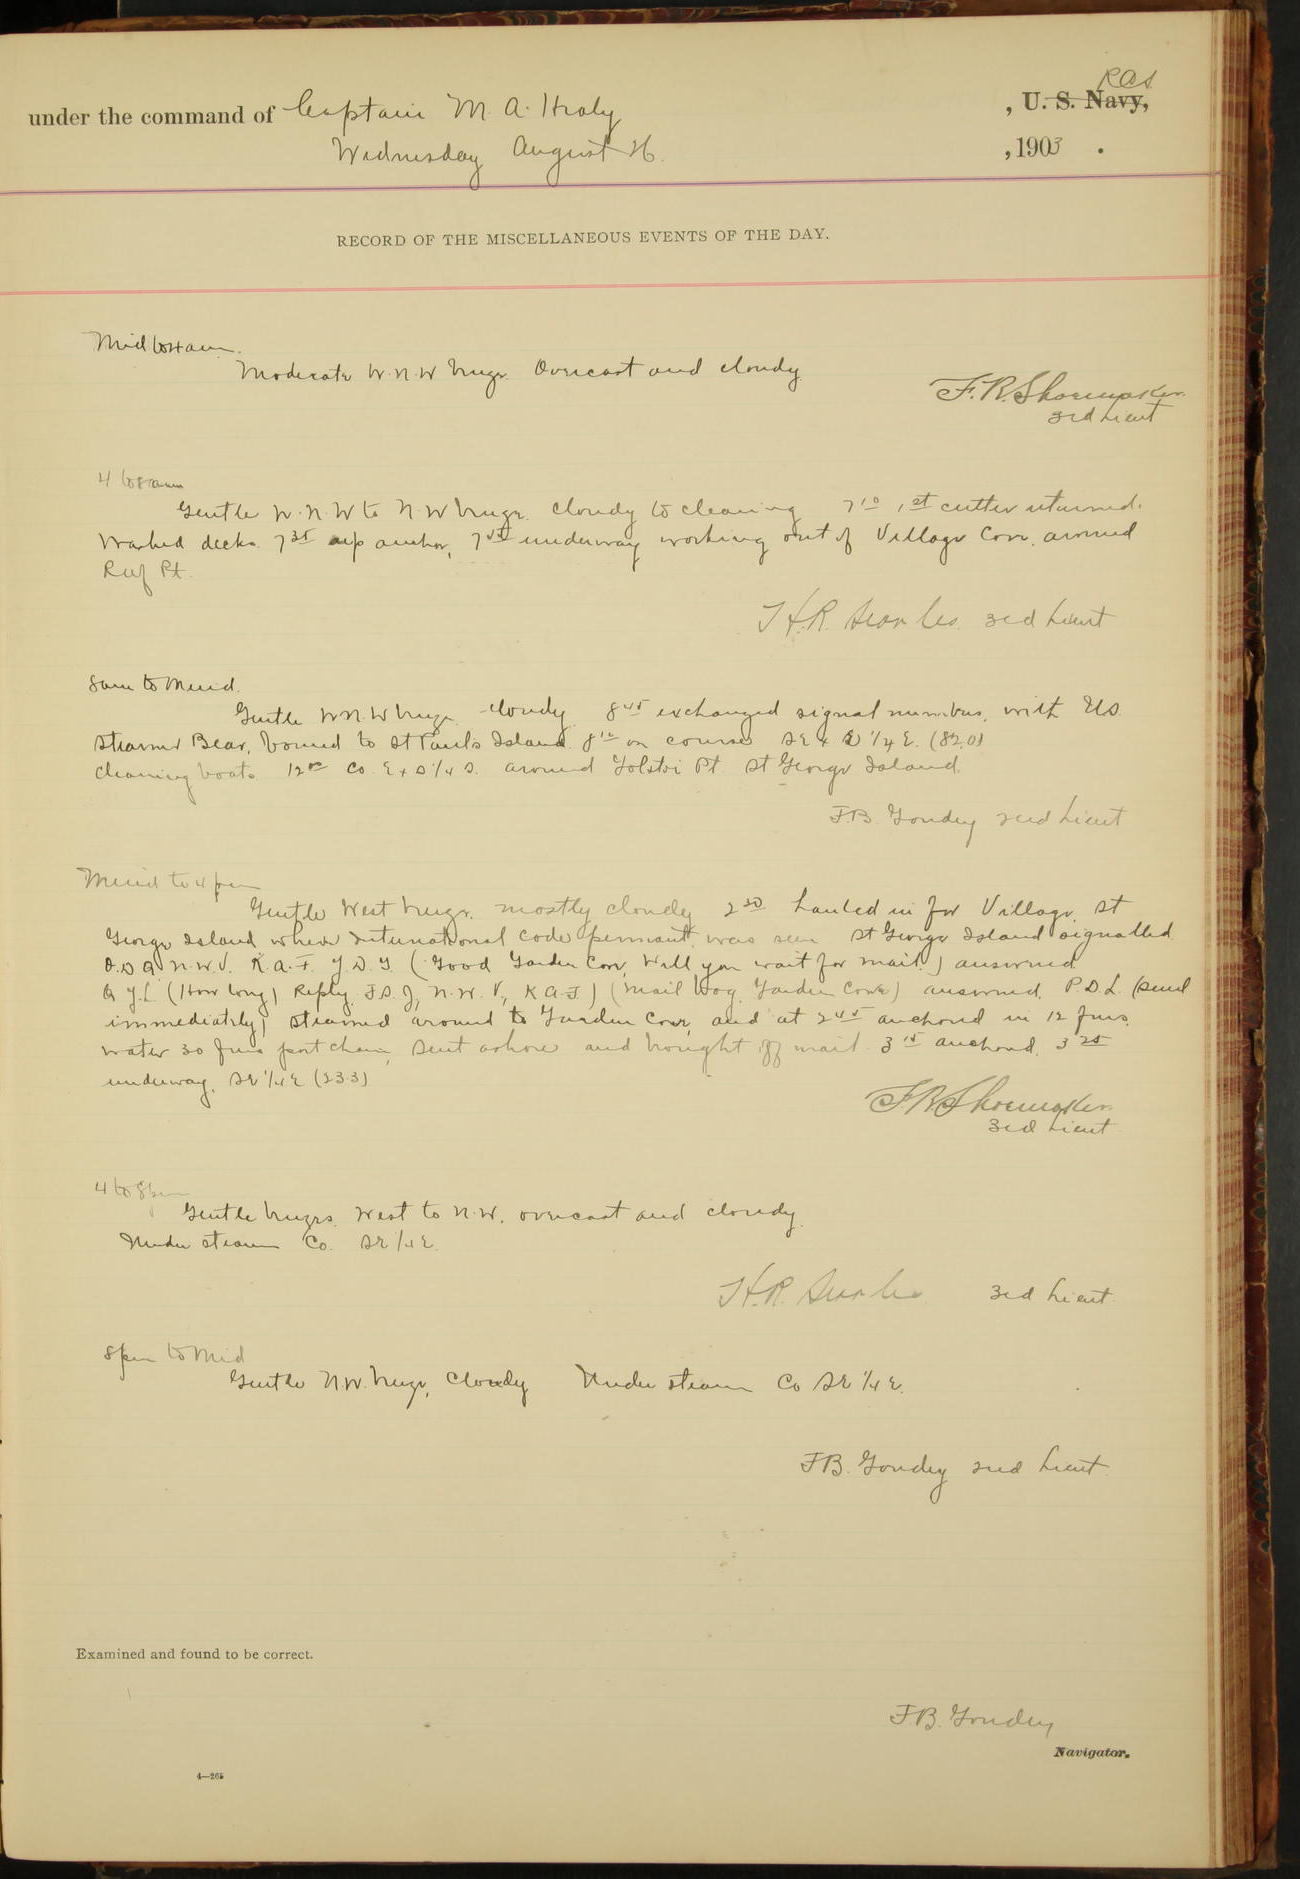 RCS
under the command of Captain M. A. Healy , U. S. Navy,
Wednesday August 26. , 1903 .
RECORD OF THE MISCELLANEOUS EVENTS OF THE DAY.
Mid to 4 am.
Moderate W.N.W breeze. Overcast and cloudy
F. R. Shoemaker
3rd Lieut
4 to 8 am
Gentle W.N.W to N.W breeze. Cloudy to clearing 7 10 1st cutter returned.
Washed decks. 7 35 up anchor, 7 45 underway working out of Village Cove, around
Reef Pt.
H.R. Searles. 3rd Lieut
8 am to Merid.
Gentle WNW breeze. cloudy 8 45 exchanged signal numbers, with U.S.
Steamer Bear, bound to St Pauls Island. 8 10 on course SE x S 1/4 E. (82.0)
Cleaning boats. 12 00 Co. E x S 1/4 S. around Tolstoi Pt. St George Island.
F.B. Goudey 2nd Lieut
Merid to 4 pm
Gentle West breeze. mostly cloudy 2 30 hauled in for Village, St
George Island where International code pennant was seen St George Island signalled
N.W.V. K.A.F. (Good Garden Cove, Will you wait for mail.) answered
(How long) Reply N.W.V., K.A.F.) (Mail bag. Garden Cove) answered. P.D.L. (send
immediately) steamed around to Garden Cove, and at 2 45 anchored in 12 fms.
water 30 fms port chain, sent ashore and brought off mail. 3 15 anchored, 3 25
underway. SE 1/4 E (233)
F R Shoemaker
3rd Lieut
4 to 8 pm
Gentle breezes. West to N.W. overcast and cloudy.
Under steam Co. SE 1/4 E.
H.R. Searles 3rd Lieut.
8 pm to Mid
Gentle N.W. breeze, Cloudy Under steam Co SE 1/4 E.
F.B. Goudey 2nd Lieut
Examined and found to be correct.
F.B. Goudey
Navigator.
4—265